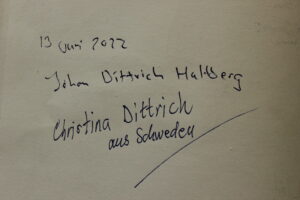 13 Juni 2022
Johan Dittrich Hallberg
Christina Dittrich
aus Schweden